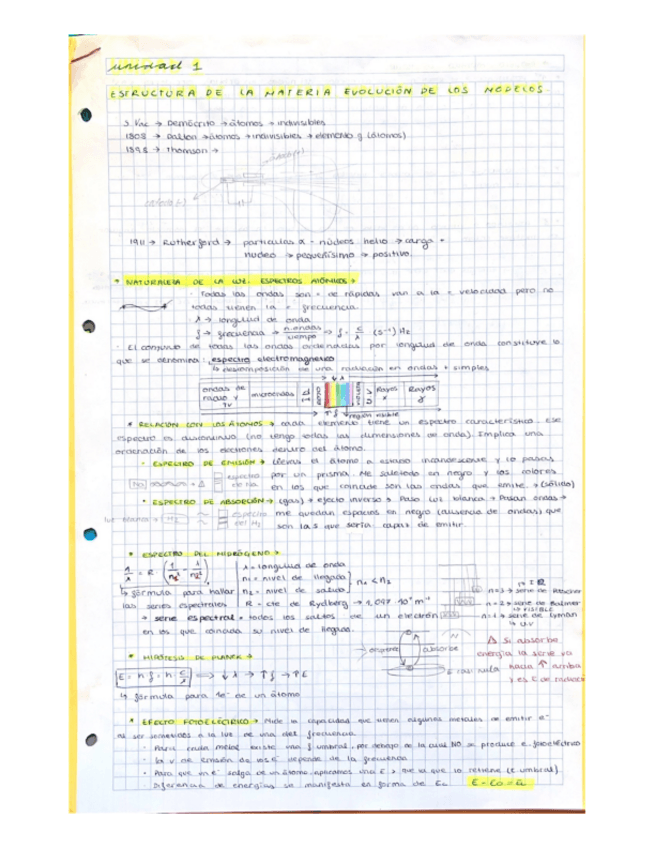 unidad 1
ESTRUCTURA DE LA MATERIA EVOLUCIÓN DE LOS MODELOS.
5 Vac → Demócrito → átomos → indivisibles
1808 → Dalton → átomos → indivisibles → elemento q (átomos)
1898 → Thomson →
1911 → Rutherford → partículas α - núcleos helio → carga +
nucleo → pequeñísimo → positivo.
* NATURALEZA DE LA LUZ. ESPECTROS ATÓMICOS →
· Todas las ondas son = de rápidas van a la = velocidad pero no
todas tienen la = frecuencia.
λ → longitud de onda
f → frecuencia → n.ondas/tiempo → f = c/λ (s⁻¹) Hz
· El conjunto de todas las ondas ordenadas por longitud de onda constituye lo
que se denomina: espectro electromagnético
↳ descomposición de una radiación en ondas + simples
→ ↓ λ
ondas de radio y TV microondas Rayos x Rayos γ
↑ f región visible
* RELACIÓN CON LOS ÁTOMOS → cada elemento tiene un espectro característico. Ese
espectro es discontinuo (no tengo todas las dimensiones de onda). Implica una
ordenación de los electrones dentro del átomo.
· ESPECTRO DE EMISIÓN → llevas el átomo a estado incandescente y lo pasas
por un prisma. Me sale todo en negro y los colores
espectro de Na
en los que coincide son las ondas que emite. → (sólido)
· ESPECTRO DE ABSORCIÓN → (gas) → efecto inverso → Paso luz blanca → Pasan ondas →
luz blanca → H₂ espectro del H₂ me quedan espacios en negro (ausencia de ondas) que
son las que sería capaz de emitir.
* ESPECTRO DEL HIDRÓGENO →
1/λ = R · (1/n₁² - 1/n₂²) λ = longitud de onda
n₁ = nivel de llegada n₁ < n₂
↳ fórmula para hallar n₂ = nivel de salida
las series espectrales R = cte de Rydberg → 1,097 · 10⁷ m⁻¹
→ serie espectral = todos los saltos de un electrón
en los que coincida su nivel de llegada.
n=3 → serie de Paschen
n=2 → serie de Balmer
↳ VISIBLE
n=1 → serie de Lyman
↳ U.V
desprende absorbe
Si absorbe
energía la serie va
hacia ↑ arriba
y es E de radiación
* HIPÓTESIS DE PLANCK →
E = h f = h c/λ ⟹ ↓λ → ↑f → ↑E
↳ fórmula para 1e⁻ de un átomo
* EFECTO FOTOELÉCTRICO → Mide la capacidad que tienen algunos metales de emitir e⁻
al ser sometidos a la luz de una det frecuencia.
· Para cada metal existe una f umbral, por debajo de la cual NO se produce e. fotoeléctrico
· La v de emisión de los e⁻ depende de la frecuencia
· Para que un e⁻ salga de un átomo aplicamos una E > que el que lo retiene (E umbral)
Diferencia de energías se manifiesta en forma de Ec E - Eo = Ec